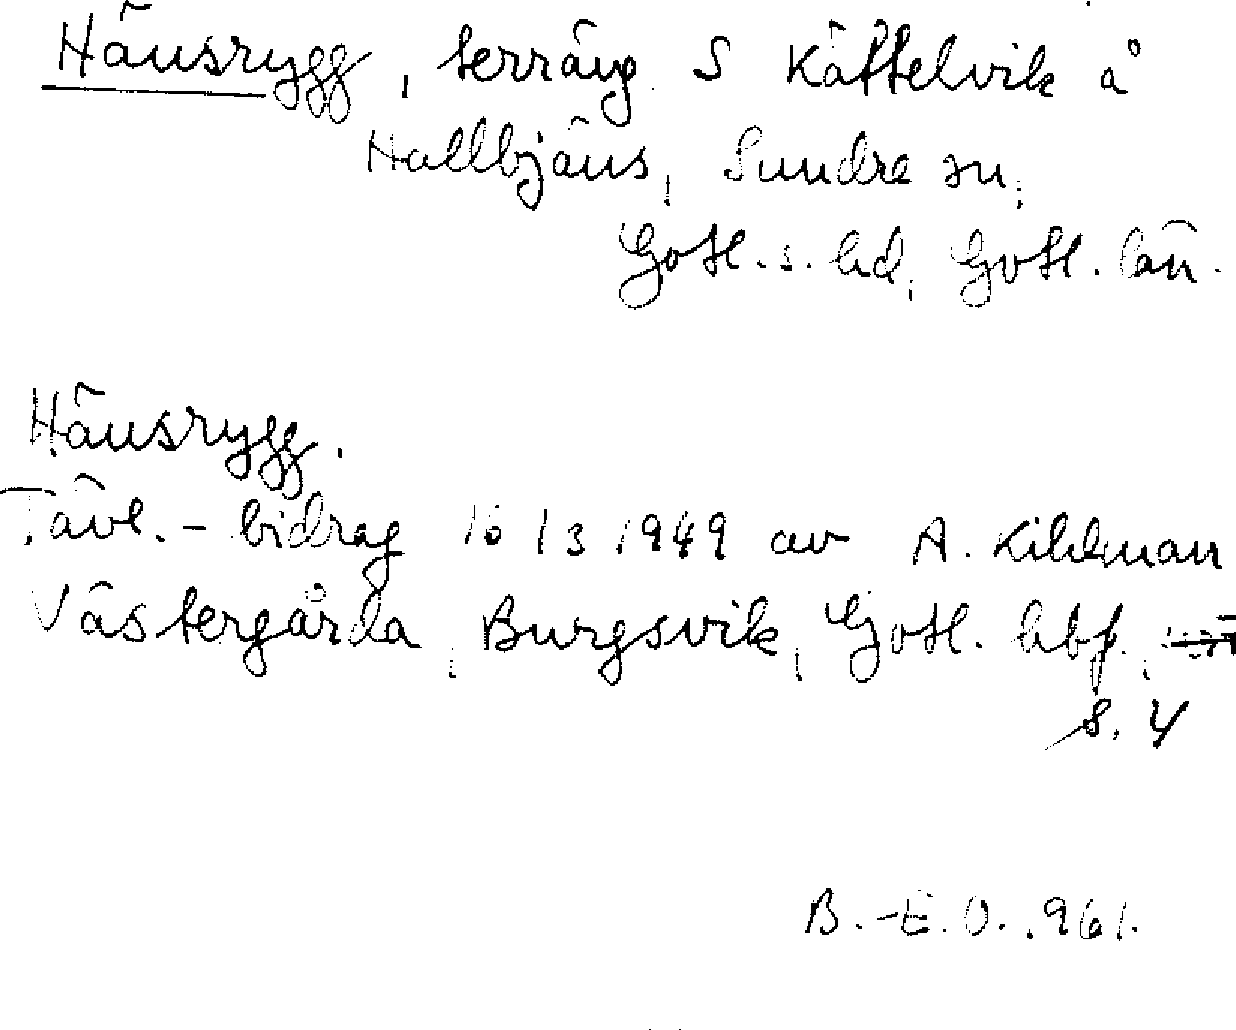 Hänsrygg, terräng S Kättelvik å
Hallbjäns, Sundre sn,
Gotl. s. hd, Gotl. län.
Hänsrygg.
Tävl.-bidrag 16/3 1949 av A. Kihlman
Västergårda, Burgsvik, Gotl. hbf.,
s. 4
B.-E. O. 961.